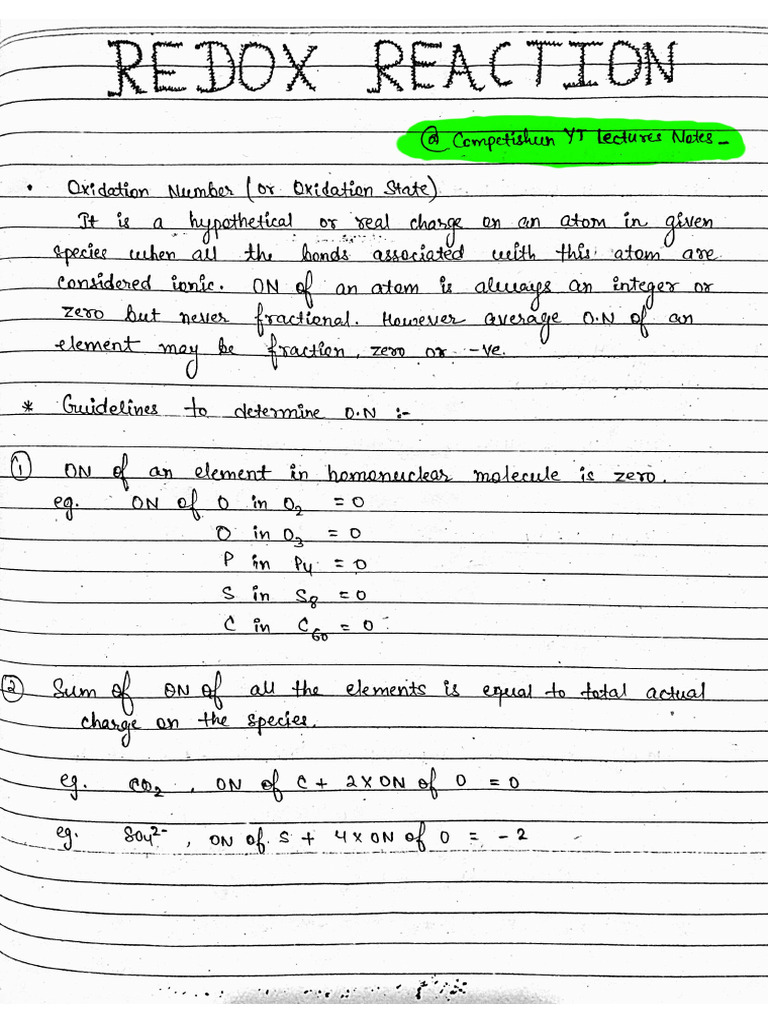 REDOX REACTION
@ Competishun YT Lectures Notes_
• Oxidation Number (or Oxidation State)
It is a hypothetical or real charge on an atom in given
species when all the bonds associated with this atom are
considered ionic. ON of an atom is always an integer or
zero but never fractional. However average O.N of an
element may be fraction, zero or -ve.
* Guidelines to determine O.N :-
① ON of an element in homonuclear molecule is zero.
eg. ON of O in O₂ = 0
O in O₃ = 0
P in P₄ = 0
S in S₈ = 0
C in C₆₀ = 0
② Sum of ON of all the elements is equal to total actual
charge on the species.
eg. CO₂, ON of C + 2×ON of O = 0
eg. SO₄²⁻, ON of S + 4×ON of O = -2